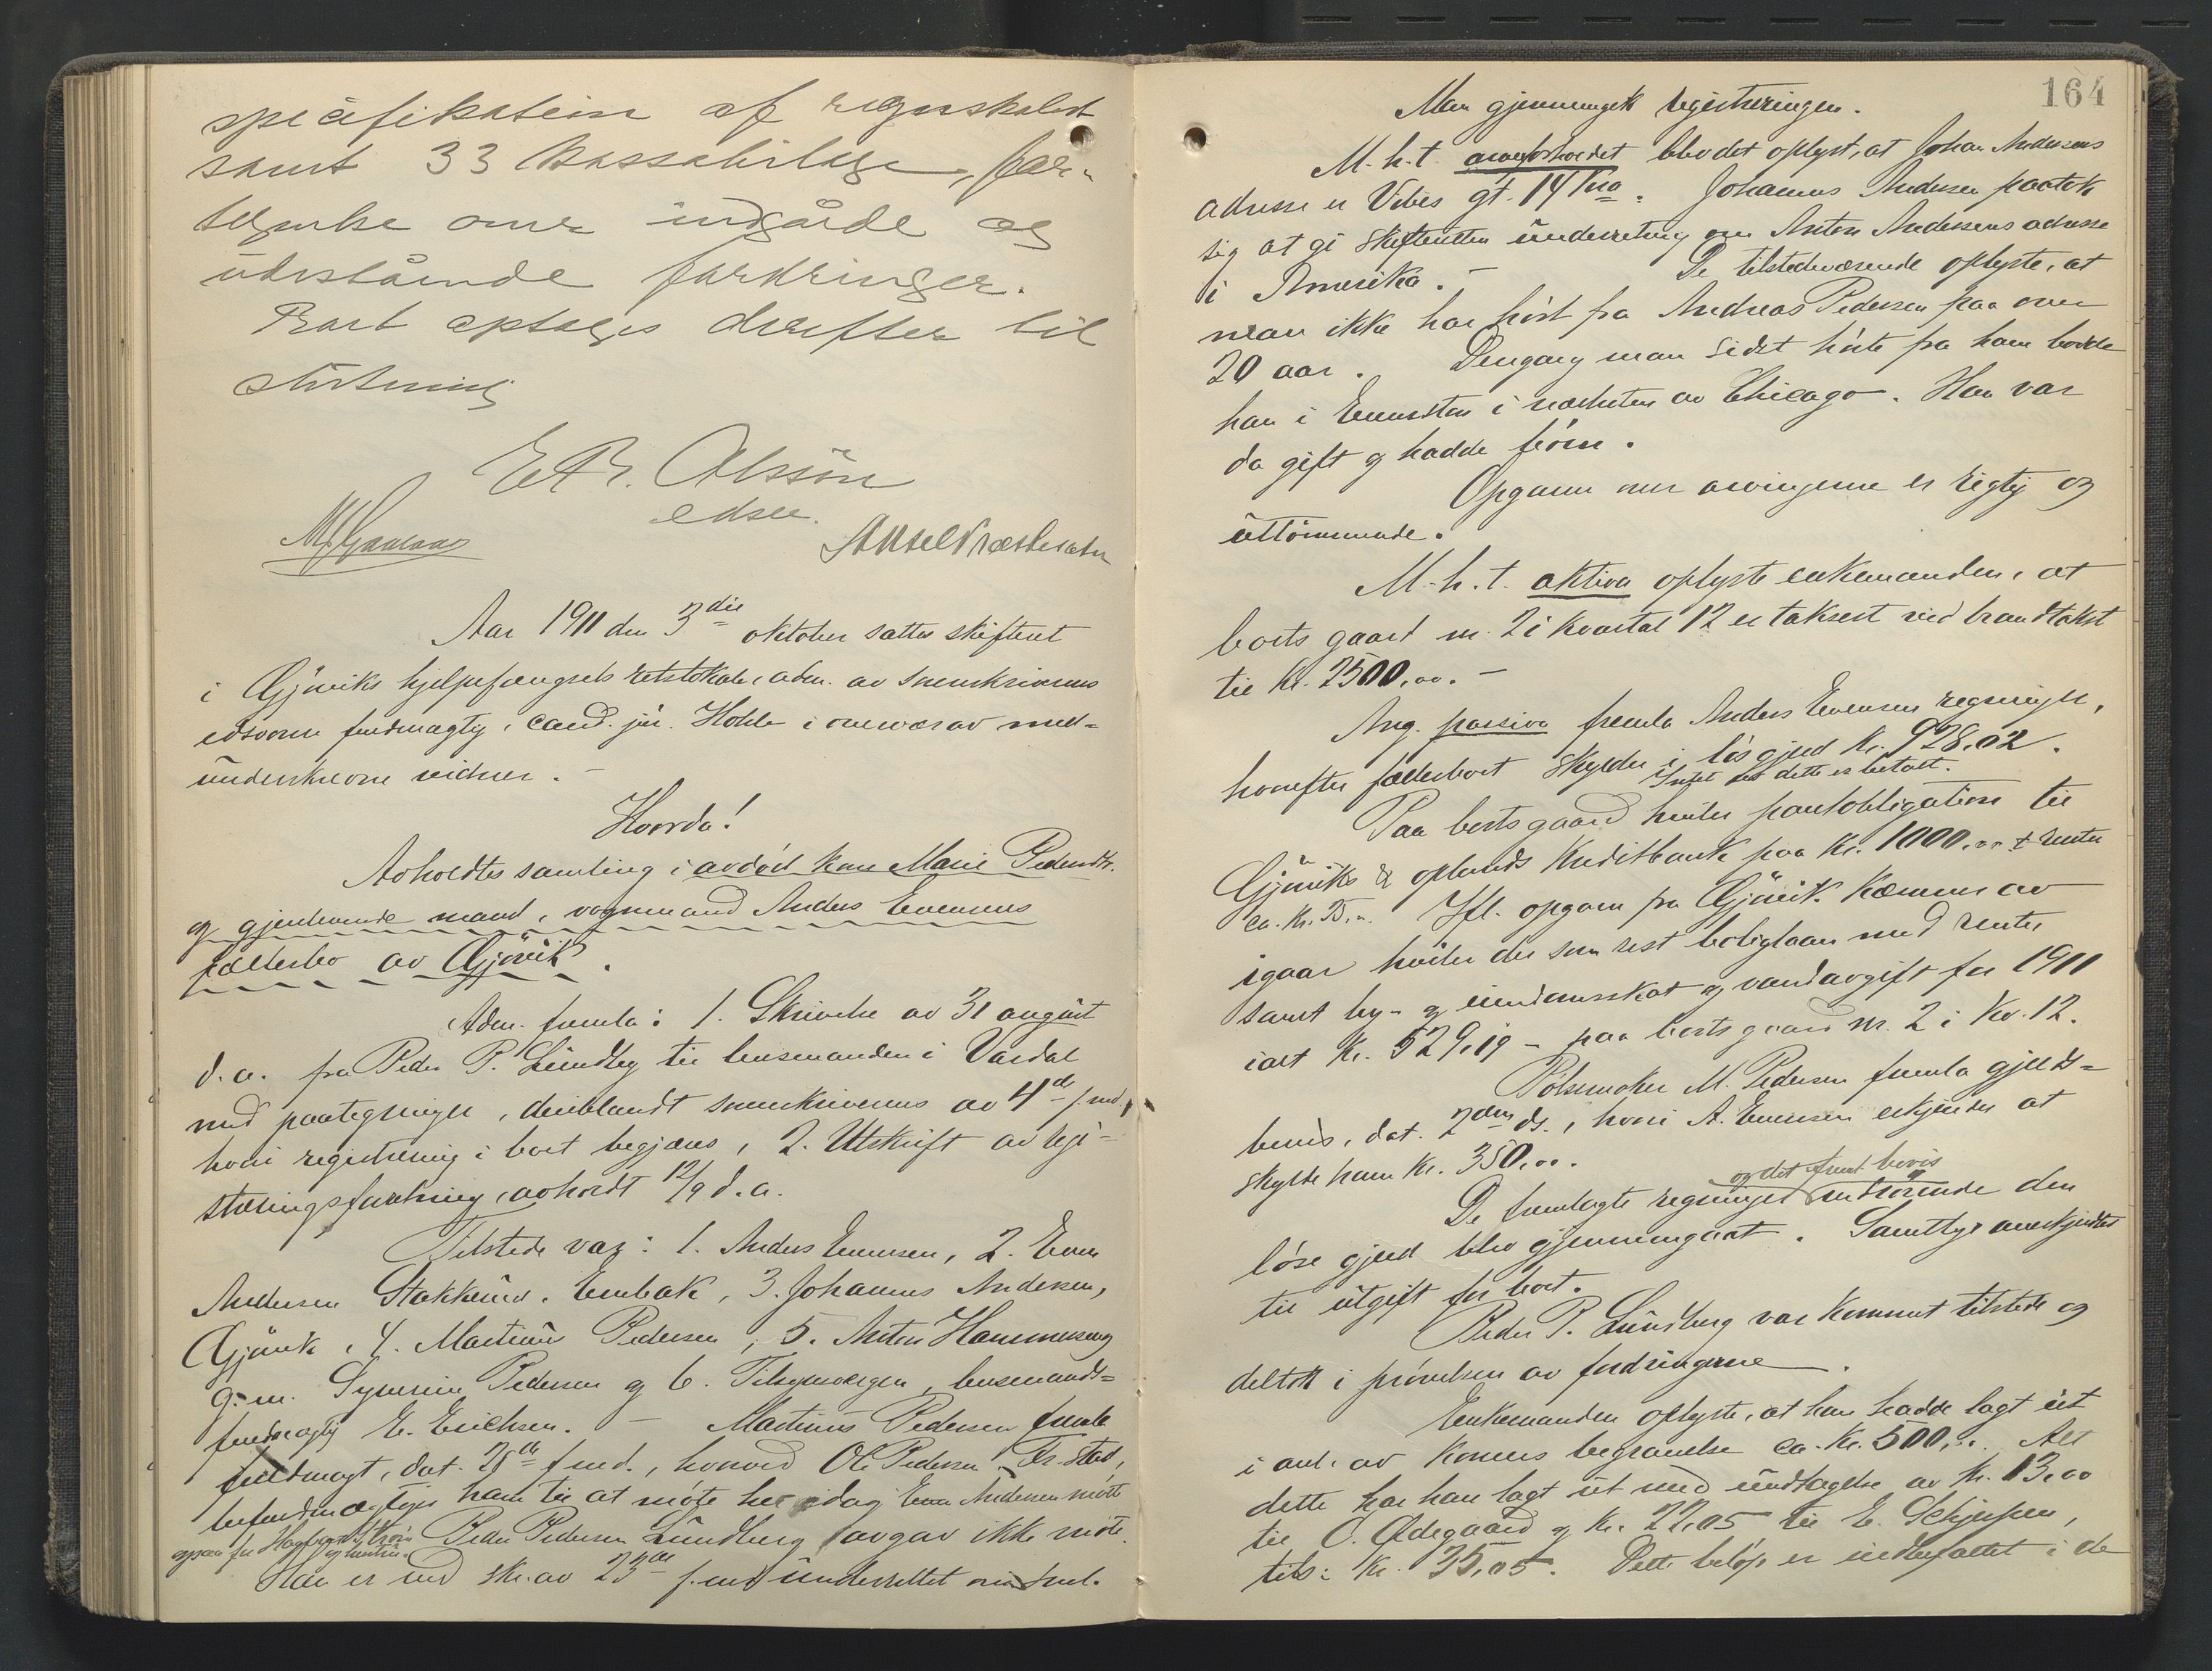 specifikation af regnskabet
samt 33 Kassabilage, for-
tegnelse over indgåede og
udestående fordringer.
Boet optages derefter til
slutning
E. Br. Olssön
edsv.
Aar 1911 den 3die oktober sattes skifteret
i Gjøviks hjelpefængsels retslokale, adm. av sorenskriverens
edsvorne fuldmægtig, cand. jur. Holde i overvær av med-
underskrevne vidner. -
Hvorda!
Avholdtes samling i avdød kone Marie Pedersdtr.
og gjenlevende mand, vognmand Anders Evensens
fællesbo av Gjøvik.
Adm. fremla: 1. Skrivelse av 31 august
d.a. fra Peder P. Lundberg til lensmanden i Vardal
med paategninger, deriblandt sorenskriverens av 4de f. md.,
hvori registrering i boet begjæres, 2. Utskrift av regi-
streringsforretning, avholdt 12/9 d.a.
Tilstede var: 1. Anders Evensen, 2. Even
Andersen Stokkelund, 3. Johannes Andersen,
Gjøvik, 4. Martinus Pedersen, 5. Anton Hammerseng
g. m. Syverine Pedersen og 6. Tilsynsværgen, lensmands-
fuldmægtig E. Erichsen. - Martinus Pedersen fremla
fuldmagt, dat. 28de f. md., hvorved Ole Pedersen Fr. stad,
befuldmægtiger ham til at møte her idag Even Andersen møtte
ogsaa for Hagbart Strøm og hustru. Peder Pedersen Lundberg avgav ikke møte.
Han er ved skr. av 23de f. md. underrettet om saml.
164
Man gjennemgik registreringen.
M. h. t. arveforholdet blev det oplyst, at Johan Andersens
adresse er Vibes gt. 14 Kra. Johannes Andersen paatok
sig at gi skifteretten underretning om Anton Andersens adresse
i Amerika. - De tilstedeværende oplyste, at
man ikke har hørt fra Andreas Pedersen paa over
20 aar. Dengang man sidst hørte fra ham bodde
han i Evanston i nærheten av Chicago. Han var
da gift og hadde børn.
Opgaven over arvingerne er rigtig og
uttømmende.
M. h. t. aktiva oplyste enkemanden, at
boets gaard nr. 2 i kvartal 12 er taksert ved brandtakst
til Kr. 2500,00. -
Ang. passiva fremla Anders Evensen regninger,
hvorefter fællesboet skylder i løs gjeld Kr. 928,02.
Intet av dette er betalt.
Paa boets gaard hviler pantobligation til
Gjøviks & oplands Kreditbank paa Kr. 1000,00 + renter
ca. Kr. 25,00. Ifl. opgave fra Gjøvik Kæmner av
igaar hviler der som rest boliglaan med renter
samt by- og eiendomsskat og vandavgift for 1911
ialt Kr. 529,19 - paa boets gaard nr. 2 i Kv. 12.
Pølsemaker M. Pedersen fremla gjelds-
bevis, dat. 2den ds., hvori A. Evensen erkjender at
skylde ham Kr. 350,00.
og det freml. bevis
De fremlagte regninger vedrørende den
løse gjeld blev gjennemgaat. Samtlige anerkjendtes
til utgift for boet.
Peder P. Lundberg var kommet tilstede og
deltok i prøvelsen av fordringerne.
Enkemanden oplyste, at han hadde lagt ut
i anl. av konens begravelse ca. Kr. 500,00. Alt
dette har han lagt ut med undtagelse av Kr. 13,00
til O. Ødegaard og Kr. 22,05 til E. Schjesen,
tils: Kr. 35,05. Dette beløp er indbefattet i de